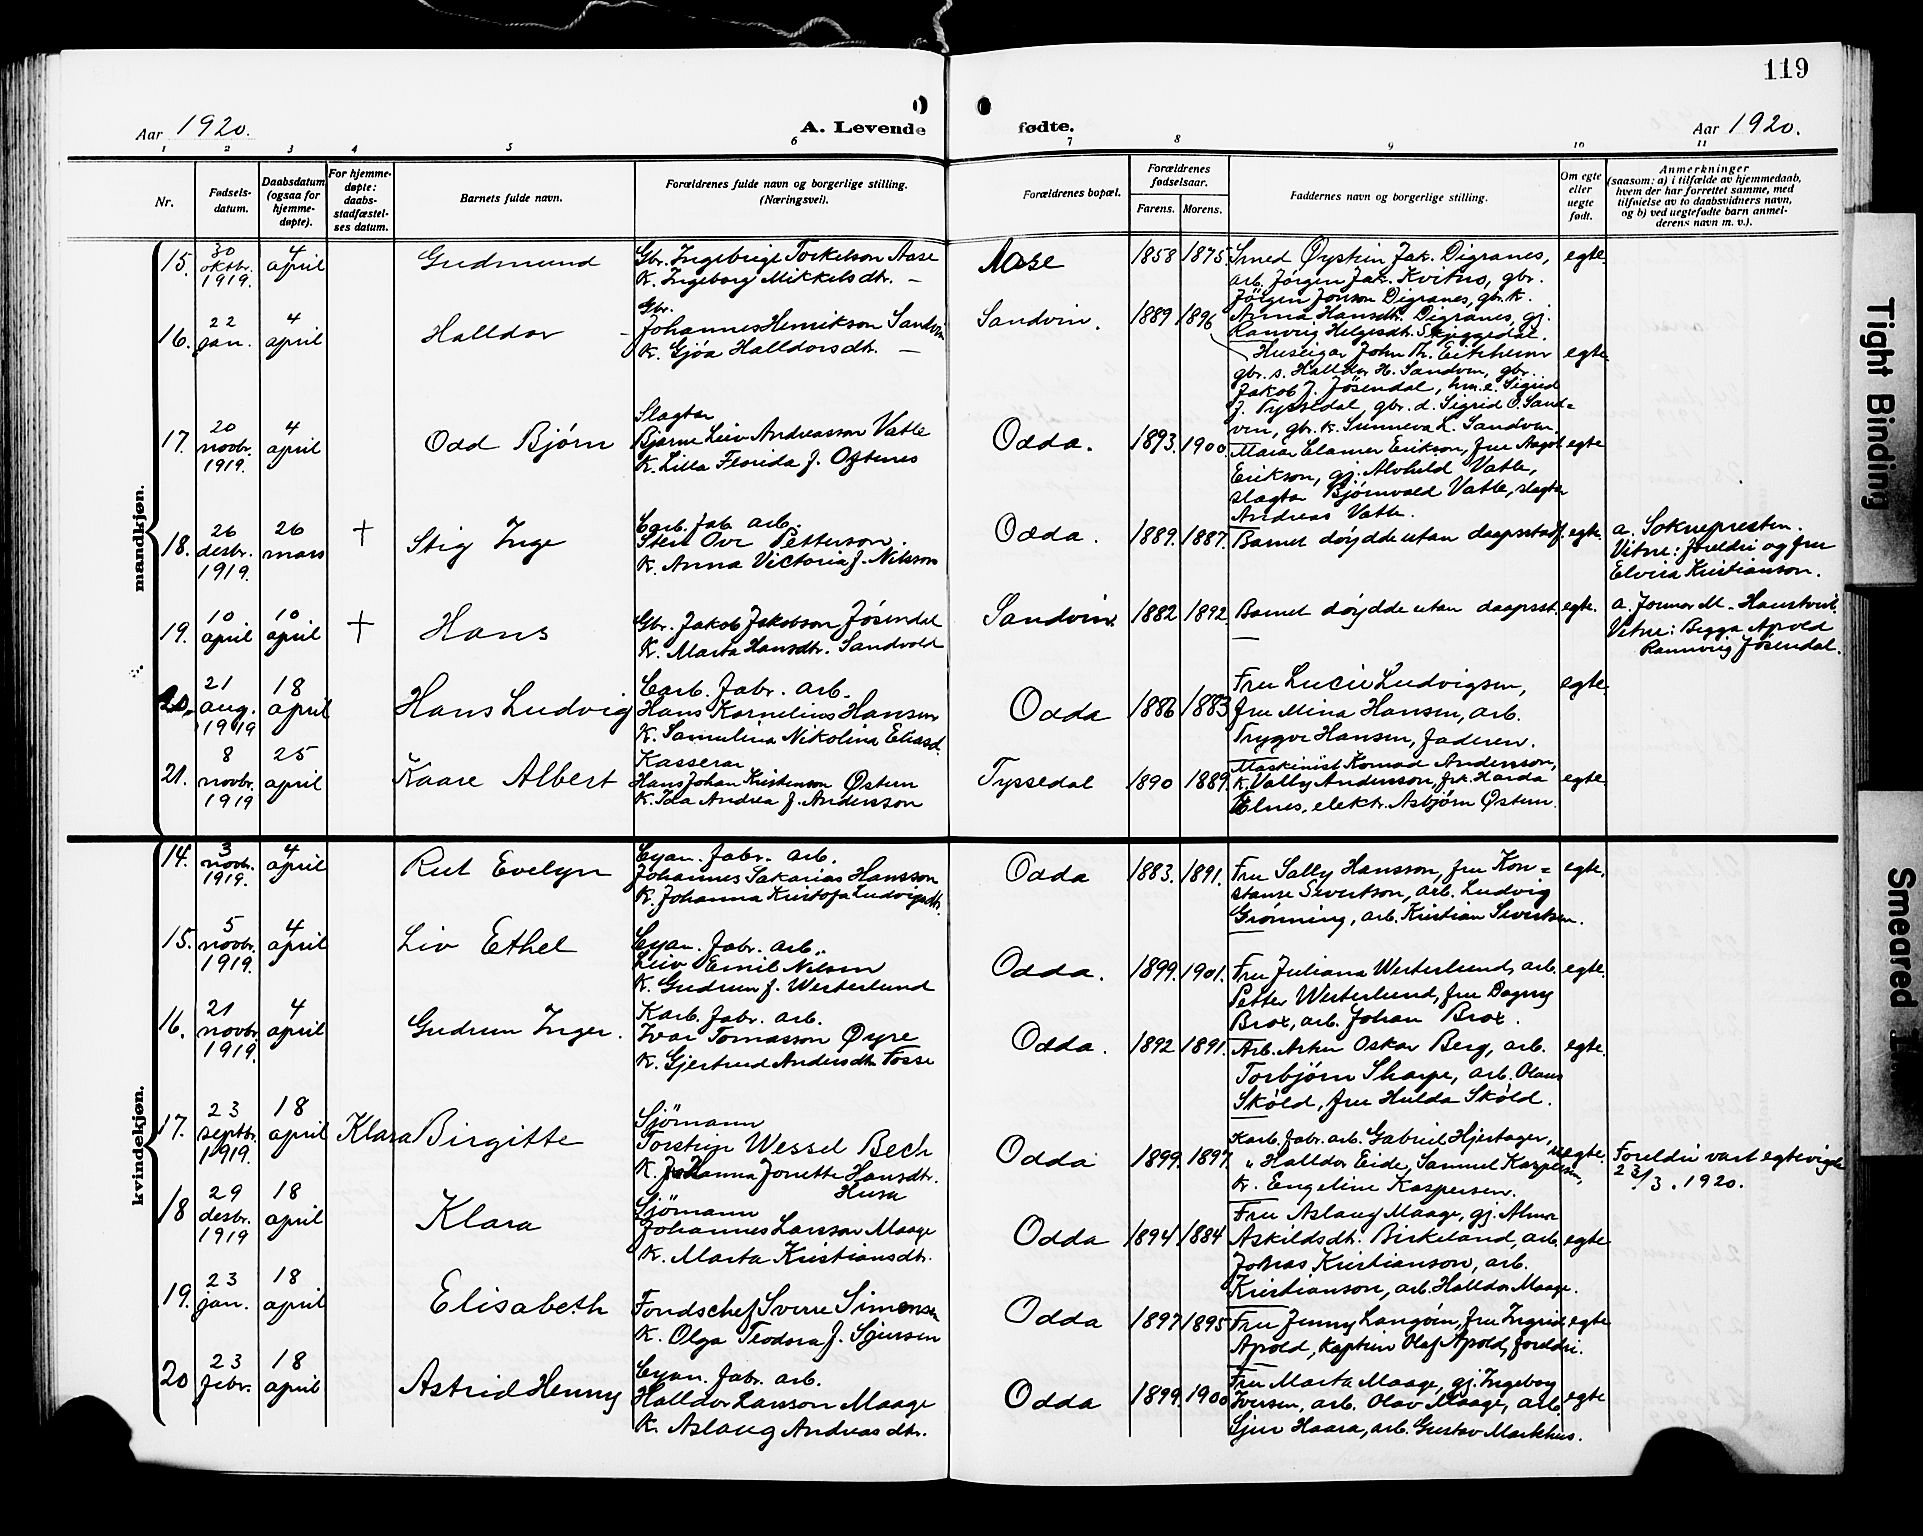 119
Aar 1920.
A. Levende fødte.
Aar 1920.
1 2 3 4 5 6 7 8 9 10 11
Nr.
Fødsels-
datum.
Daabsdatum
(ogsaa for
hjemme-
døpte).
For hjemme-
døpte:
daabs-
stadfæstel-
ses datum.
Barnets fulde navn.
Forældrenes fulde navn og borgerlige stilling.
(Næringsvei).
Forældrenes bopæl.
Forældrenes
fødselsaar.
Farens. Morens.
Faddernes navn og borgerlige stilling.
Om egte
eller
uegte
født.
Anmerkninger
(saasom: a) i tilfælde av hjemmedaab,
hvem der har forrettet samme, med
tilføielse av to daabsvidners navn,
og b) ved uegtefødte barn anmel-
derens navn m. v.).
mandkjøn.
15. 30 oktbr. 1919. 4 april Gudmund
Gbr. Ingebrigt Torkelson Aase
K. Ingeborg Mikkelsdtr. —
Aase 1858 1875.
Smed Øystein Jak. Digranes,
arb. Jörgen Jak. Kvitno, gbr.
Jörgen Jonson Digranes, gbr. k.
Anna Hansdtr. Digranes, gj.
Ranveig Helgesdtr. Skjeggedal.
egte.
16. 22 jan. 4 april Halldor
Gbr.
Johannes Henrikson Sandvin
K. Gjøa Halldorsdtr. —
Sandvin. 1889 1896
Huseigar John Th. Eitrheim
gbr. s. Halldor H. Sandvin, gbr.
Jakob J. Jösendal, hm. e. Sigrid
J. Tyssedal, gbr. d. Sigrid O. Sand=
vin, gbr. k. Sunneva L. Sandvin.
egte
17. 20 novbr. 1919. 4 april Odd Bjørn
Slagtar
Bjarne Leiv Andreasson Vatle
K. Lilla Florida f. Oftenes
Odda. 1893. 1900
Maria Elamer Erikson, frue Aagot
Erikson, gj. Alvhild Vatle,
slagtar Bjørnvald Vatle, slagtar
Andreas Vatle.
egte
18. 26 desbr. 1919. 26 mars + Stig Inge
Carb. fab. arb.
Sten Ove Petterson.
K. Anna Victoria f. Nilsson
Odda. 1889. 1887.
Barnet döydde utan daapsstadf. egte.
a. Sokneprestn.
Vitne: foreldri og fru
Elvira Kristianson.
19. 10 april 10 april + Hans
Gbr. Jakob Jakobson Jøsendal
K. Marta Hansdtr. Sandvold
Sandvin. 1882 1892
Barnet döydde utan daapsst. egte.
a. Jormor M. Haustveit.
Vitne: Begga Apold
Rannveig Jösendal.
20. 21 aug. 1919 18 april Hans Ludvig
Carb. fabr. arb.
Hans Kornelius Hansen
K. Samuline Nikolina Eliasd.
Odda 1886 1883
Fru Lucie Ludvigsen,
fru Mina Hansen, arb.
Trygve Hansen, faderen.
egte
21. 8 novbr. 1919 25 april Kaare Albert
Kasserar
Hans Johan Kristenson Østern
K. Ida Andrea f. Andersson
Tyssedal 1890 1889.
Maskinist Konrad Andersson,
K. Vally Andersson, frk. Harda
Elnes, elektr. Asbjørn Østern.
egte.
kvindekjøn.
14. 3 novbr. 1919. 4 april Rut Evelyn
Cyan. fabr. arb.
Johannes Sakarias Hansson
K. Johanna Kristofa Ludvigsdtr.
Odda 1883. 1891.
Fru Sally Hansson, fru Kon=
stanse Sivertson, arb. Ludvig
Grönning, arb. Kristian Sivertsen.
egte.
15. 5 novbr. 1919. 4 april Liv Ethel
Cyan. fabr. arb.
Leiv Emil Nilsen
K. Gudrun f. Westerlund
Odda. 1899. 1901.
Fru Juliana Westerlund, arb.
Petter Westerlund, fru Dagny
Brox, arb. Johan Brox.
egte.
16. 21 novbr. 1919. 4 april Gudrun Inger.
Karb. fabr. arb.
Ivar Tomasson Øyre
K. Gjertrud Andersdtr. Fosse
Odda. 1892 1891.
Arb. Artur Oskar Berg, arb.
Torbjörn Sharpe, arb. Olaus
Sköld, fru Hulda Sköld.
egte.
17. 23 septbr. 1919. 18 april Klara Birgitte
Sjömann
Torstein Wessel Bech
K. Johanna Jonette Hansdtr.
Husa
Odda 1899. 1897.
Karb. fabr. arb. Gabriel Hjertager,
" Halldor Eide, Samuel Kaspersen,
K. Engeline Kaspersen.
uegte.
Foreldri vart egtevigde
23/3. 1920.
18 29 desbr. 1919 18 april Klara
Sjömann
Johannes Larsson Maage
K. Marta Kristiansdtr.
Odda 1894 1884
Fru Aslaug Maage, gj. Alma
Askildsdtr. Birkeland, arb.
Jonas Kristianson, arb.
Kristianson, arb. Halldor Maage.
egte
19. 23 jan. 18 april Elisabeth
Fondschef Sverre Simensen
K. Olga Teodora f. Sjursen
Odda 1897 1895
Fru Jenny Langöen, fru Ingrid
Apold, kaptein Olaf Apold, foreldri.
egte
20 23 febr. 18 april Astrid Henny
Cyan. fabr. arb.
Halldor Larsson Maage
K. Aslaug Andreasdtr.
Odda 1899. 1900
Fru Marta Maage, gj. Ingeborg
Iversen, arb. Olav Maage, arb.
Sjur Haara, arb. Gustav Markhus.
egte
Tight Binding
Smeared